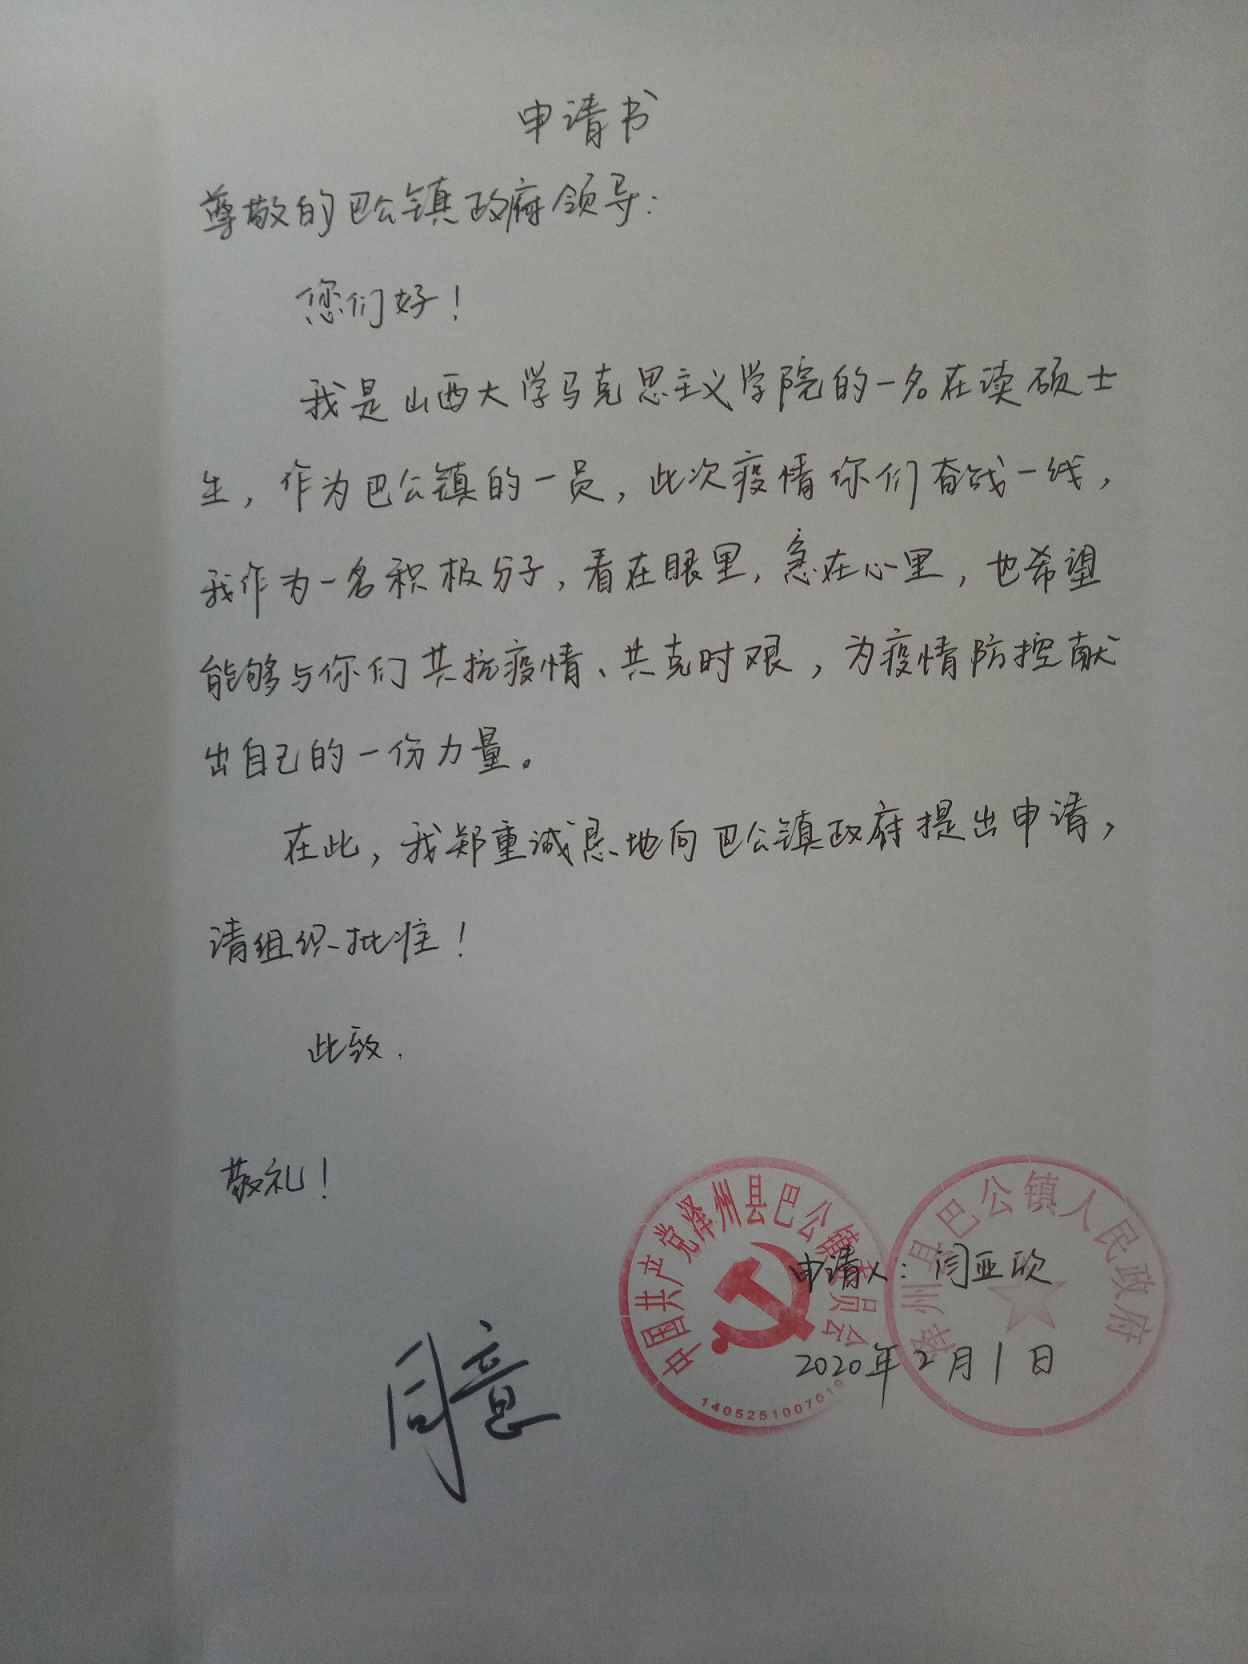 申请书
尊敬的巴公镇政府领导：
您们好！
我是山西大学马克思主义学院的一名在读硕士
生，作为巴公镇的一员，此次疫情你们奋战一线，
我作为一名积极分子，看在眼里，急在心里，也希望
能够与你们共抗疫情、共克时艰，为疫情防控献
出自己的一份力量。
在此，我郑重诚恳地向巴公镇政府提出申请，
请组织批准！
此致.
敬礼！
中国共产党泽州县巴公镇委员会
1405251007019
泽州县巴公镇人民政府
申请人：闫亚欣
2020年2月1日
同意